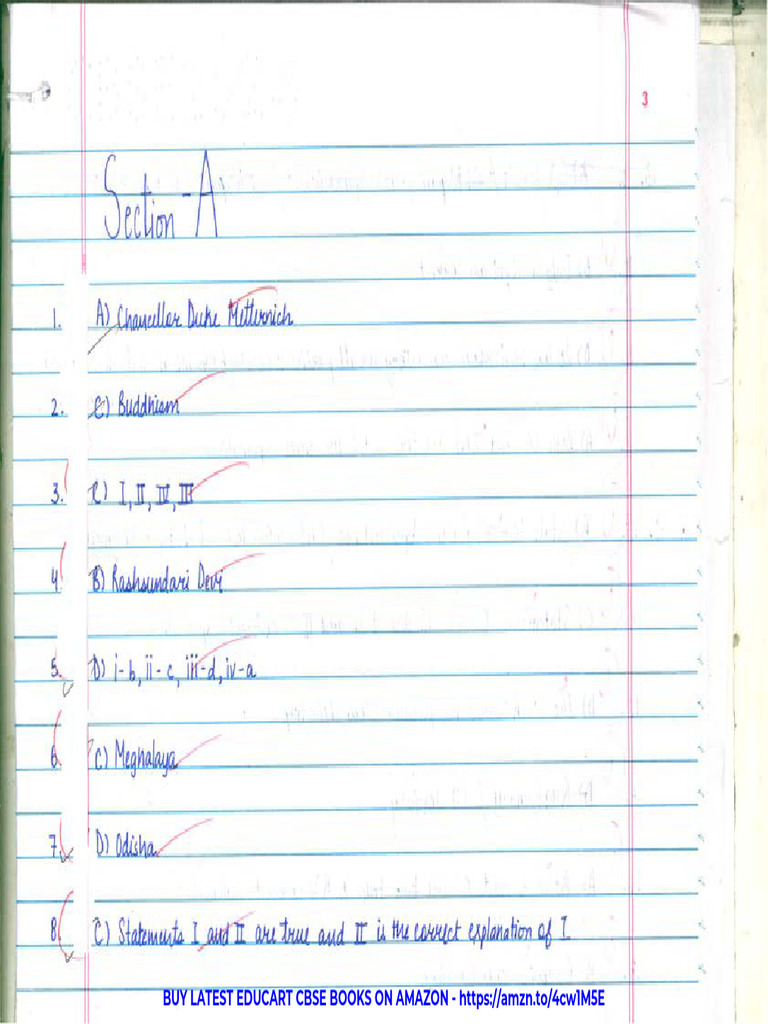 3
Section-A
1. A) Chancellor Duke Metternich
2. C) Buddhism
3. C) I, II, IV, III
4. B) Rashsundari Devi
5. D) i-b, ii-c, iii-d, iv-a
6. C) Meghalaya
7. D) Odisha
8. C) Statements I and II are true and II is the correct explanation of I.
BUY LATEST EDUCART CBSE BOOKS ON AMAZON - https://amzn.to/4cw1M5E